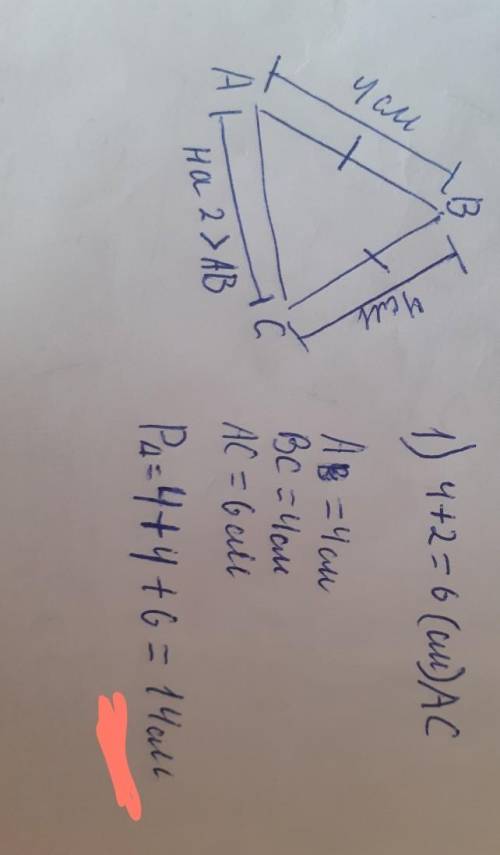 A
4 см
B
4 см
C
на 2 > AB
1) 4+2=6 (см) AC
AB = 4 см
BC = 4 см
AC = 6 см
P△ = 4 + 4 + 6 = 14 см